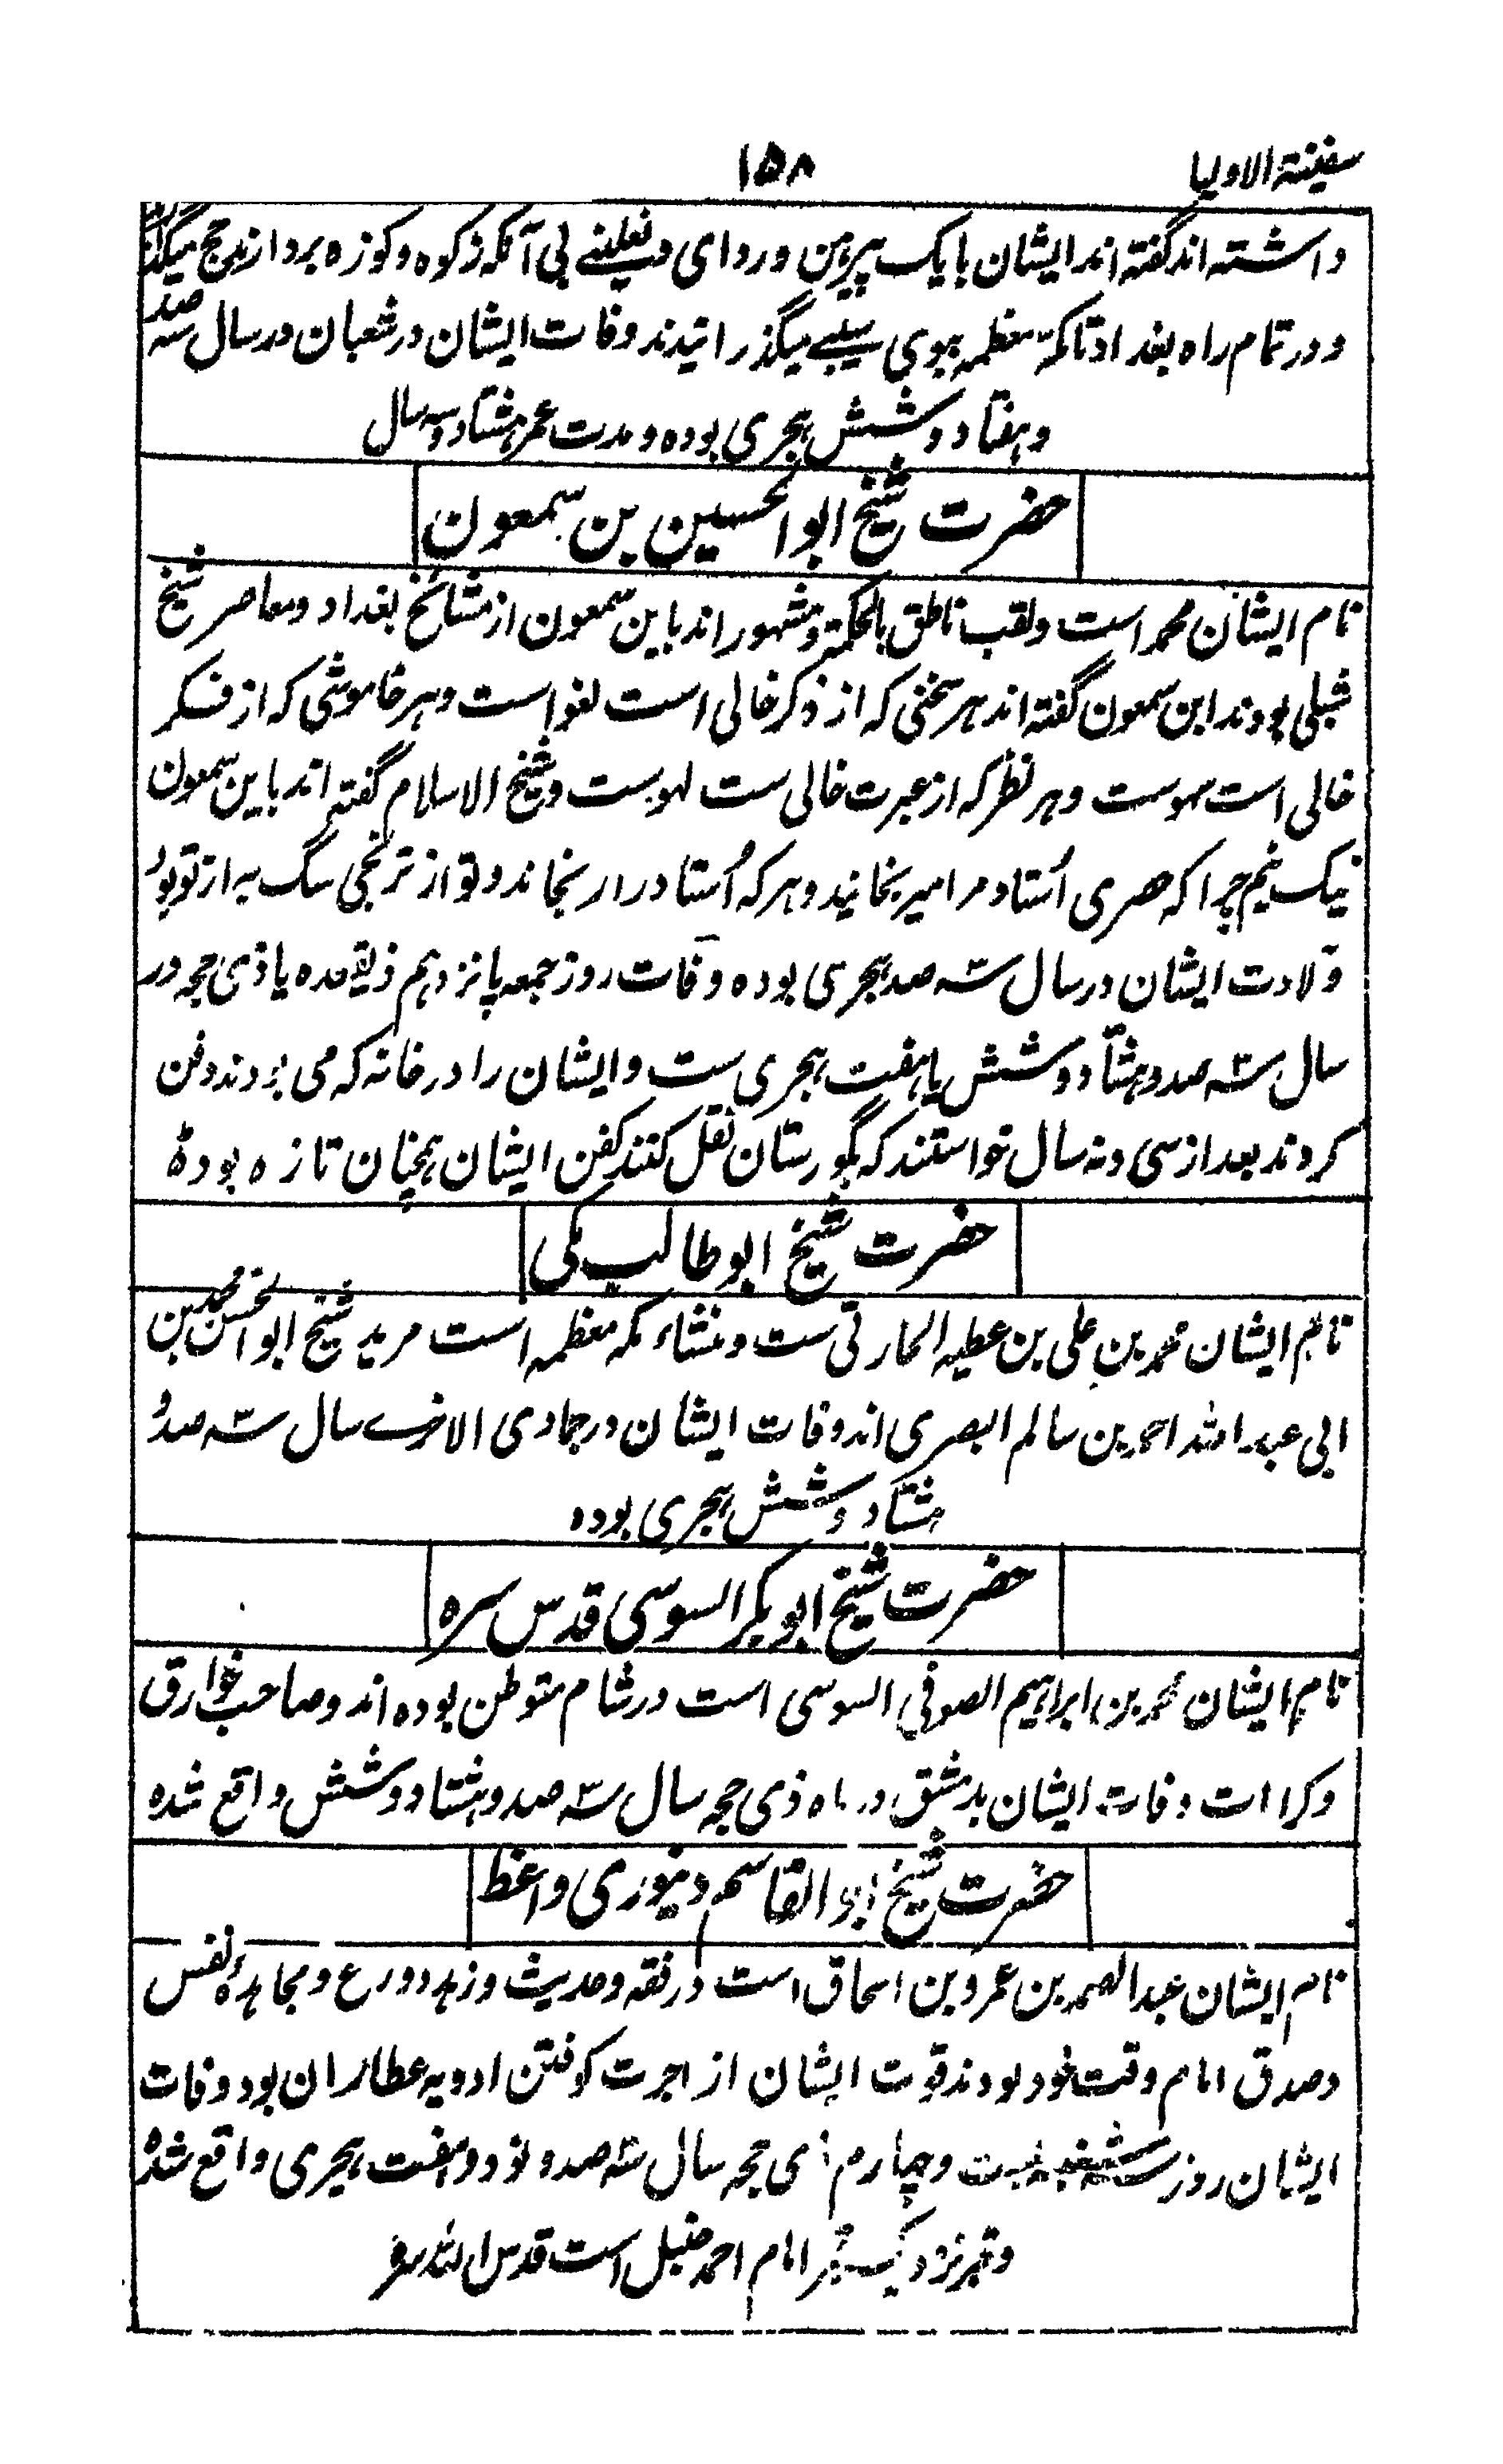 سفینة الاولیا
۱۵۸
داشته اند گفته اند ایشان با یک پیرهن و ردای و نعلینے بی آنکه رکوه و کوزه بردارند حج میکردند
و در تمام راه بغداد تا مکّه معظمه ببوی سیبے میگذرانیدند وفات ایشان در شعبان در سال سه صد
و هفتاد و شش هجری بوده و مدت عمر هشتاد و سه سال
حضرت شیخ ابوالحسین بن سمعون
نام ایشان محمد است و لقب ناطق بالحکمة و مشهور اند باین سمعون از مشائخ بغداد و معاصر شیخ
شبلی بودند ابن سمعون گفته اند هر سخنی که از ذکر خالی است لغو است و هر خاموشی که از فکر
خالی است سهوست و هر نظر که از عبرت خالی ست لهوست و شیخ الاسلام گفته اند باین سمعون
نیک نیم چرا که حصری اُستاد مرا میرنجانید و هر که اُستاد را رنجاند و تو از نرنجی سگ به از تو بود
ولادت ایشان در سال سه صد هجری بوده وفات روز جمعه پانزدهم ذیقعده یا ذی حجه در
سال سه صد و هشتاد و شش یا هفت هجری ست و ایشان را در خانه که می بودند دفن
کردند بعد از سی و نه سال خواستند که بگورستان نقل کنند کفن ایشان همچنان تازه بوده
حضرت شیخ ابوطالب مکی
نام ایشان محمد بن علی بن عطیه الحارثی ست و منشاء مکه معظمه است مرید شیخ ابوالحسن محمد بن
ابی عبدالله احمد بن سالم البصری اند وفات ایشان در جمادی الاخرے سال سه صد و
هشتاد و شش هجری بوده
حضرت شیخ ابوبکر السوسی قدس سره
نام ایشان محمد بن ابراهیم الصوفی السوسی است در شام متوطن بوده اند و صاحب خوارق
و کرامات وفات ایشان بدمشق در ماه ذی حجه سال سه صد و هشتاد و شش واقع شده
حضرت شیخ ابوالقاسم دینوری واعظ
نام ایشان عبدالصمد بن عمرو بن اسحاق است در فقه و حدیث و زهد و ورع و مجاهدهٔ نفس
و صدق امام وقت خود بودند قوت ایشان از اجرت کوفتن ادویه عطاران بود وفات
ایشان روز سه شنبه بیست و چهارم ذی حجه سال سه صد و نود و هفت هجری واقع شده
و قبر نزدیک قبر امام احمد حنبل است قدس الله سره